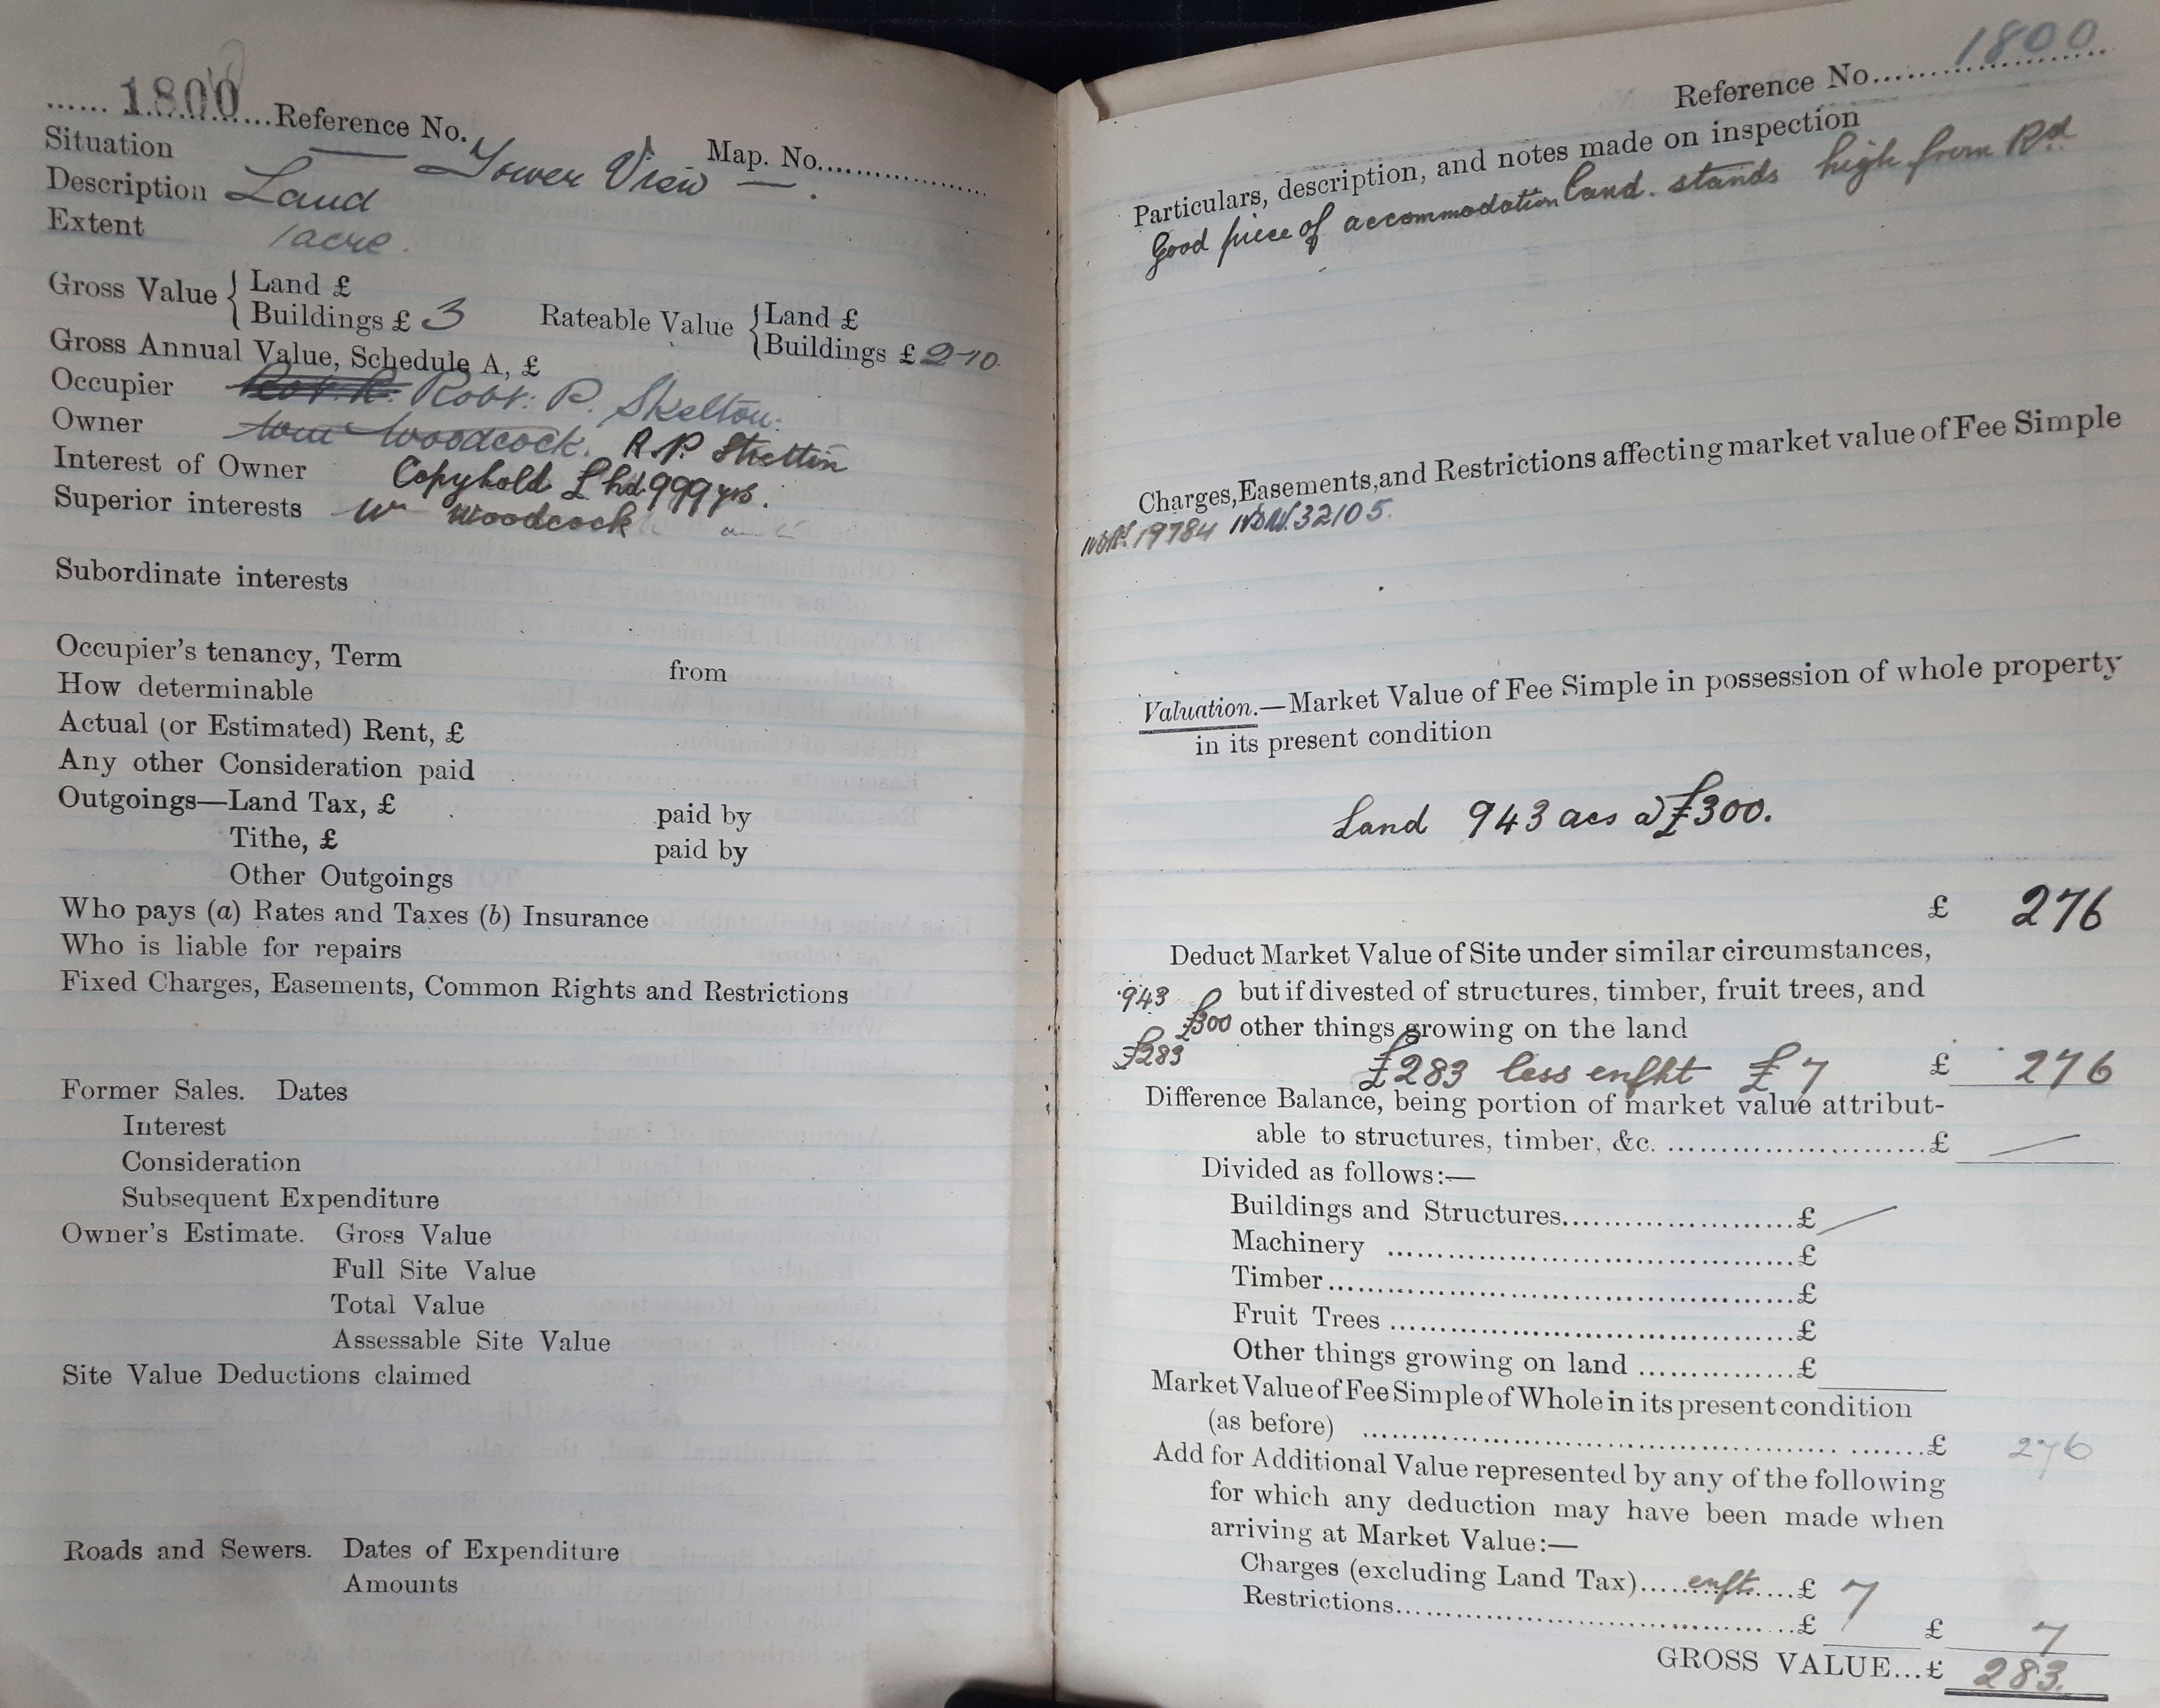 1800 Reference No. Map. No.
Situation — Tower View —.
Description Land
Extent 1 acre.
Gross Value { Land £
Buildings £ 3 Rateable Value { Land £
Buildings £ 2-10.
Gross Annual Value, Schedule A, £
Occupier Robt. P. Skelton.
Owner Wm Woodcock. R.P. Skelton
Interest of Owner Copyhold Lhd 999 yrs.
Superior interests Wm Woodcock
Subordinate interests
Occupier's tenancy, Term from
How determinable
Actual (or Estimated) Rent, £
Any other Consideration paid
Outgoings—Land Tax, £ paid by
Tithe, £ paid by
Other Outgoings
Who pays (a) Rates and Taxes (b) Insurance
Who is liable for repairs
Fixed Charges, Easements, Common Rights and Restrictions
Former Sales. Dates
Interest
Consideration
Subsequent Expenditure
Owner's Estimate. Gross Value
Full Site Value
Total Value
Assessable Site Value
Site Value Deductions claimed
Roads and Sewers. Dates of Expenditure
Amounts
Reference No. 1800
Particulars, description, and notes made on inspection
Good piece of accommodation land. stands high from Rd
Charges, Easements, and Restrictions affecting market value of Fee Simple
19784 32105.
Valuation.—Market Value of Fee Simple in possession of whole property
in its present condition
Land 943 acs @ £300.
£ 276
Deduct Market Value of Site under similar circumstances,
·943 but if divested of structures, timber, fruit trees, and
£300 other things growing on the land
£283 £283 less enfht £7 £ 276
Difference Balance, being portion of market value attribut-
able to structures, timber, &c. £ —
Divided as follows:—
Buildings and Structures £ —
Machinery £
Timber £
Fruit Trees £
Other things growing on land £
Market Value of Fee Simple of Whole in its present condition
(as before) £ 276
Add for Additional Value represented by any of the following
for which any deduction may have been made when
arriving at Market Value:—
Charges (excluding Land Tax) enft. £ 7
Restrictions £ £ 7
GROSS VALUE...£ 283.